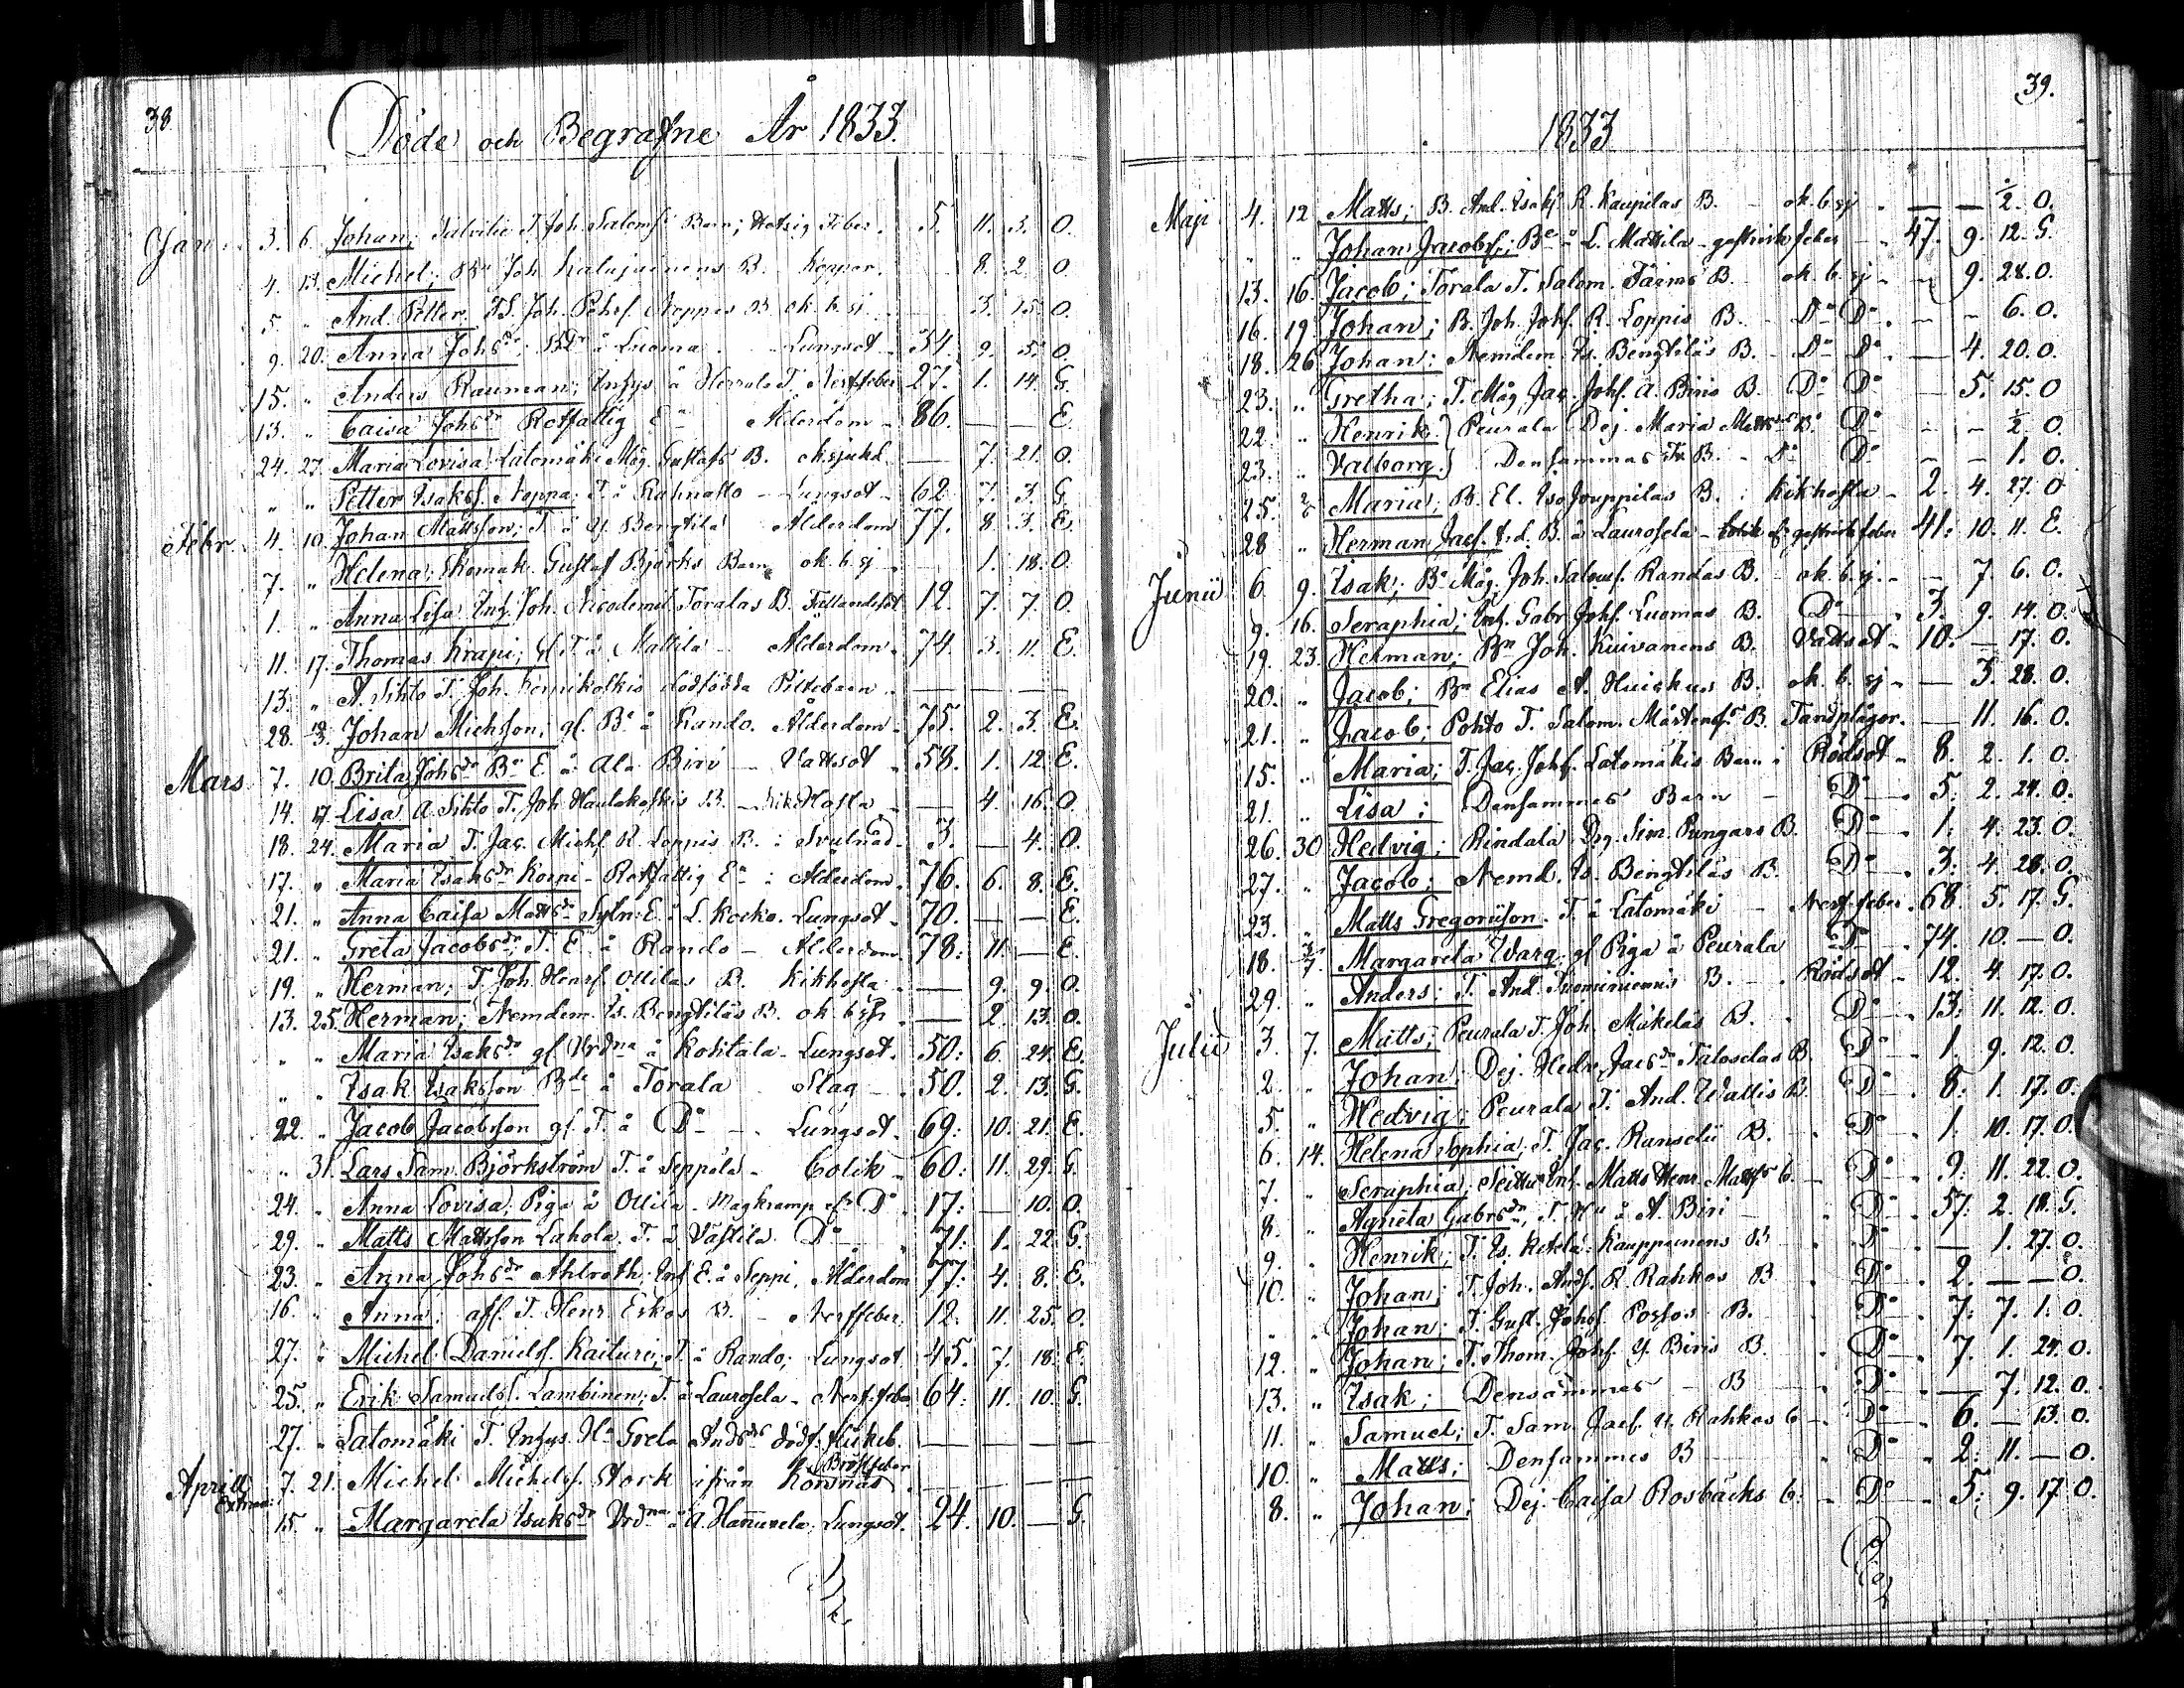 38
Döde och Begrafne År 1833.
Janu. 3. 6. Johan; T. Joh. Salomss Barn; Hetsig Feber. 5. 11. 3. O.
4. 13. Michel; Bn Joh. B. Koppor. 8. 2. O.
5. " And. Petter. Joh. Pehrs. Noppas B. ok. b. sj. 3. 15. O.
9. 20. Anna Johsdr. å Luoma Lungsot 34. 9. 5. O.
15. " Anders Rauman; Inhys å Herrala T. Nerffeber 27. 1. 14. G.
13. " Caisa Johsdr Rotfattig Ea Ålderdom 86. — — E.
24. 27. Maria Lovisa Latomäki Måg. Gustafs B. ok. sjukd. — 7. 21. O.
" " Petter Isakss. Noppa T. å Rahnasto Lungsot 62 7. 3. G.
Febr. 4. 10 Johan Mattsson; T. å Y. Bengtila Ålderdom 77. 8 3. E.
7. " Helena; Skomak. Gustaf Björks Barn ok. b. sj — 1. 18. O
1. " Anna Lisa Inh. Joh. Toralas B. Fallandesot 12. 7. 7. O.
11. 17. Thomas Krapi; gl. T. å Mattila Ålderdom. 74. 3. 11. E.
13. " A. Sihto T. Joh. dödfödda Piltebarn — — —
28. 10/3. Johan Michsson; gl. Be å Rando. Ålderdom 75. 2. 3. E.
Mars 7. 10. Brita Johsdr Ba E å Ala Biri Vattsot 58. 1. 12 E.
14. 17. Lisa A. Sihto T. Joh. Hautakoskis B. Kikhosta — 4. 16. O.
18. 24. Maria T. Jac. Michs. R. Loppis B.: Svulnad. 3. — 4. O.
17. " Maria Isaksdr Korpi Rotfattig Ea: Ålderdom. 76. 6. 8. E.
21. " Anna Caisa Mattsdr Sytn: E. å L. Kocko. Lungsot 70. — — E.
21. " Greta Jacobsdr; T. E. å Rando Ålderdom 78: 11 — E.
19. " Herman; T. Joh. Henrs. Ottilas B. Kikhosta — 9. 9. O.
13. 25. Herman; Nemdem. Is. Bengtiläs B. ok. b. sj. — 2. 13. O.
" " Maria Isaksdr gl Vrdna å Kohtala Lungsot. 50: 6. 24. E.
" " Isak Isaksson Bde å Torala Slag 50. 2. 13. G.
22. " Jacob Jacobsson gl. T. å Do Lungsot. 69: 10. 21. E.
" 31. Lars Sam. Björkström T. å Seppälä Colik 60: 11. 29. G.
24. " Anna Lovisa; Piga å Ottila Magkramp Do 17: — 10. O.
29. " Matts Mattsson Lahola T. å Västila Do 71: 1. 22. G.
23. " Anna Johsdr Ahlroth; Inh E. å Seppi, Ålderdom 77: 4. 8. E.
16. " Anna; afl. T. Henr. Eskos B. Nerffeber 12. 11. 25. O.
27. " Michel Daniels. Kaituri; T. å Rando; Lungsot 45. 7. 18. E.
25. " Erik Samuels. Lambinen; T. å Laurosela Nerf. feber 64: 11. 10. G.
27. " Latomäki T. Inhys. Hu Greta Andsdrs dödf. — — —
Bröstfeber
Aprill 7. 21. Michel Michels. Stork ifrån Korsnäs — — —
Extran:
15. " Margareta Isaksdr Vrdna å A. Hannuxela Lungsot. 24. 10. — G.
39.
1833
Maji 4. 12 Matts; B. And. Isaks. R. Kaupilas B. ok. b. sj — — ½. O.
" " Johan Jacobss; Be å L. Mattila gastrisk feber 47. 9. 12. G.
13. 16. Jacob; Torala T. Salom. B. ok. b. sj — 9. 28. O.
16. 19 Johan; B. Joh. Johs. R. Loppis B. Do Do — — 6. O.
18. 26 Johan; Nemdem. Is. Bengtiläs B. Do Do — 4. 20. O.
23. " Gretha; T. Måg Jac. Johs. A. Biris B. Do Do — 5. 15. O
22. " Henrik } Peurala Dej. Maria Mattsdrs B. Do — — ½. O
23. " Valborg } Densammas B. Do Do — — 1. O.
25. 2/6 Maria; B. El. Jouppilas B.: Kikhosta 2. 4. 27. O
28 " Herman Jacs. B. å Laurosela gastrisk feber 41: 10. 11. E.
Junii 6 9. Isak; Be Måg. Joh. Saloms. Randas B. ok. b. sj. — 7. 6. O.
9. 16. Seraphia; Inh. Gabr. Johs. Luomas B. Do 3. 9. 14. O.
19. 23. Herman; Bn Joh. Kuivanens B. Vattsot 10. — 17. O.
20. " Jacob; Bn Elias A. Huickus B. ok. b. sj — 3. 28. O.
21. " Jacob; Pohto T. Salom. Mårtenss B. Tandplågor. — 11. 16. O.
15. " Maria; T. Jac. Johs. Latomäkis Barn: Rödsot 8. 2. 1. O.
21. " Lisa: Densammes Barn Do 5: 2. 24. O.
26. 30 Hedvig; Rindala Dg. Sim. Pungars B. Do 1: 4. 23. O.
27. " Jacob; Nemd. Is. Bengtiläs B. Do 3: 4 28. O.
23. " Matts Gregoriison. T. å Latomäki Nerf. feber 68. 5. 17. G.
18. 3/7. Margareta Warg; gl Piga å Peurala Do 74. 10. — O.
29. " Anders: T. And. B. Rödsot 12. 4. 17. O.
Julii 3. 7. Matts; Peurala T. Joh. Mäkeläs B. Do 13: 11. 12. O.
2. " Johan; Dej. Hedv. Jacsdr Taloselas B. Do 1. 9. 12. O.
5. " Hedvig; Peurala T. And. Wallis B. Do 8: 1. 17. O.
6. 14. Helena Sophia; T. Jac. Ranselii B. Do 1. 10. 17. O
7. " Seraphia; Inh. Matts Henr. Mattss b. Do 9: 11. 22. O.
8. " Agneta Gabrsdr; T. Hu å A. Biri Do 57: 2. 18. G.
9. " Henrik; T. Is. Ketelä Kauppinens B Do — 1. 27. O.
10. " Johan; T. Joh. Ands. R. Rahkos B. Do 2. — — O.
" " Johan; T. Gust. Johs. Posfos B. Do 7: 7. 1. O.
12. " Johan; T. Thom. Johs. Y. Biris B. Do 7. 1. 24. O.
13. " Isak; Densammes B Do — 7. 12. O.
11. " Samuel; T. Sam. Jacs. Y. Rahkos b Do 6. — 13. O.
10. " Matts; Densammes B Do 2: 11. — O.
8. " Johan; Dej. Caisa Rosbäcks b. Do 5: 9. 17 O.